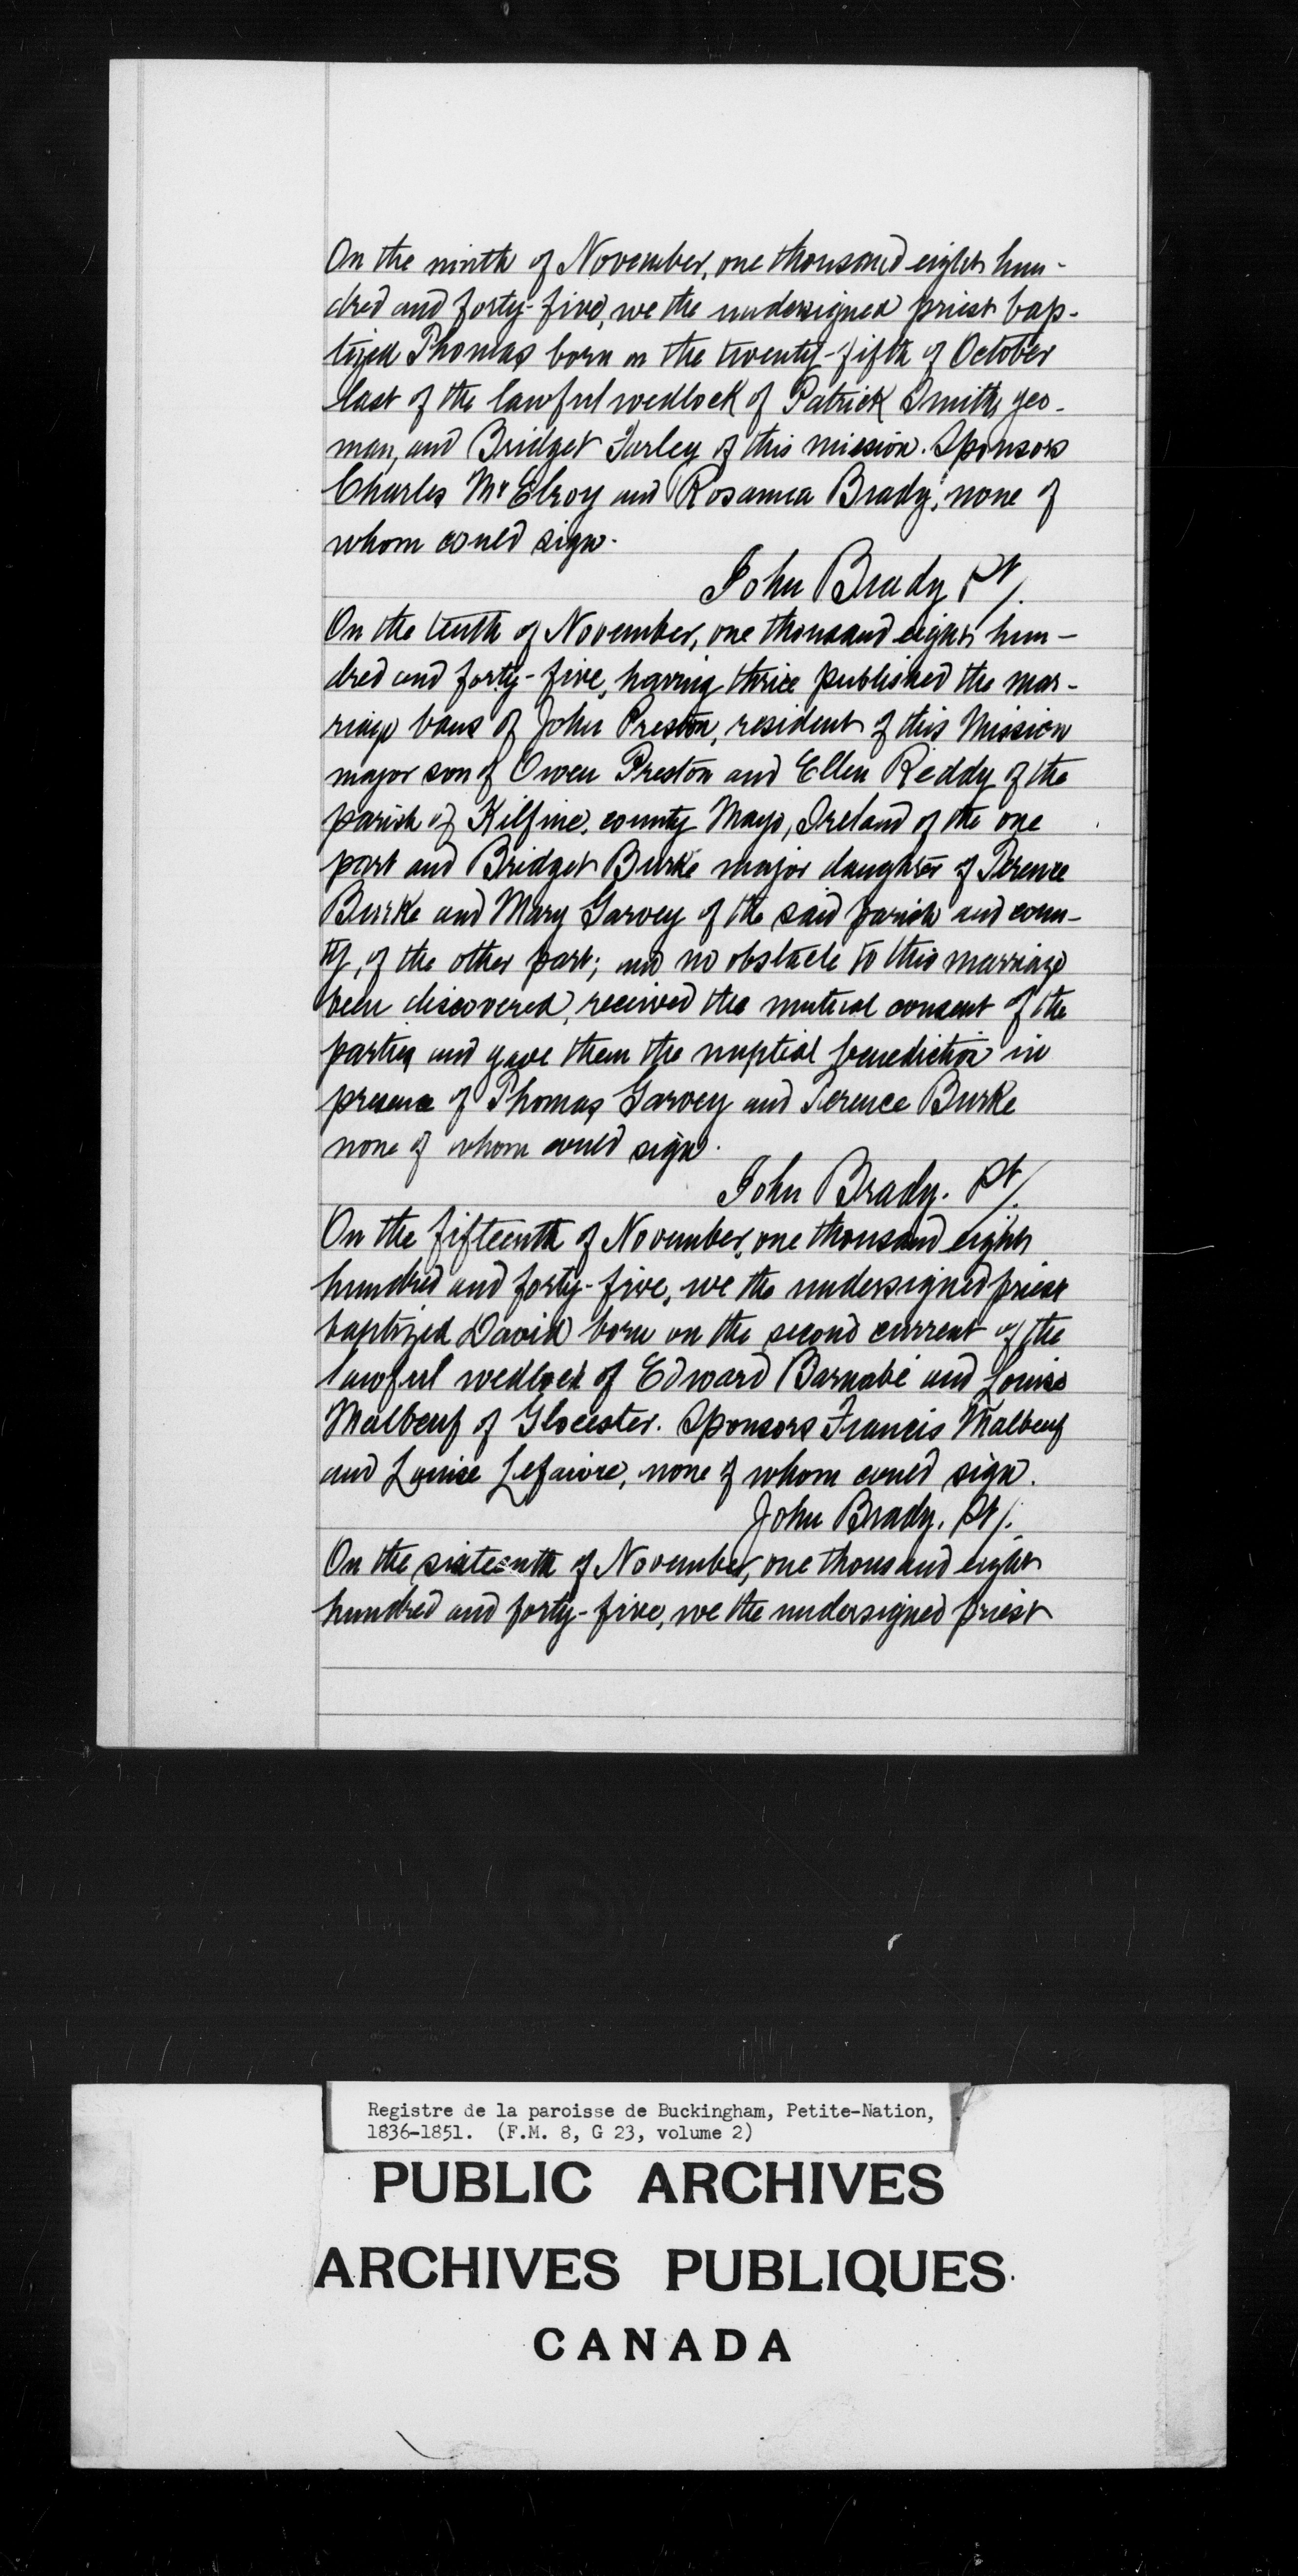 On the ninth of November, one thousand eight hun-
dred and forty-five, we the undersigned priest bap-
tized Thomas born on the twenty-fifth of October
last of the lawful wedlock of Patrick Smith, yeo-
man, and Bridget Farley of this mission. Sponsors
Charles McElroy and Rosanna Brady, none of
whom could sign.
John Brady Pt/.
On the tenth of November, one thousand eight hun-
dred and forty-five, having thrice published the mar-
riage bans of John Preston, resident of this Mission
major son of Owen Preston and Ellen Reddy of the
parish of Kilfine, county Mayo, Ireland of the one
part and Bridget Burke major daughter of Terence
Burke and Mary Garvey of the said parish and coun-
ty, of the other part; and no obstacle to this marriage
been discovered, received the mutual consent of the
parties and gave them the nuptial benediction in
presence of Thomas Garvey and Terence Burke
none of whom could sign.
John Brady. Pt/.
On the fifteenth of November, one thousand eight
hundred and forty-five, we the undersigned priest
baptized David born on the second current of the
lawful wedlock of Edward Barnabé and Louise
Malbeuf of Glocester. Sponsors Francis Malbeuf
and Louise Lefaivre, none of whom could sign.
John Brady. Pt/.
On the sixteenth of November, one thousand eight
hundred and forty-five, we the undersigned priest
Registre de la paroisse de Buckingham, Petite-Nation,
1836-1851. (F.M. 8, G 23, volume 2)
PUBLIC ARCHIVES
ARCHIVES PUBLIQUES
CANADA